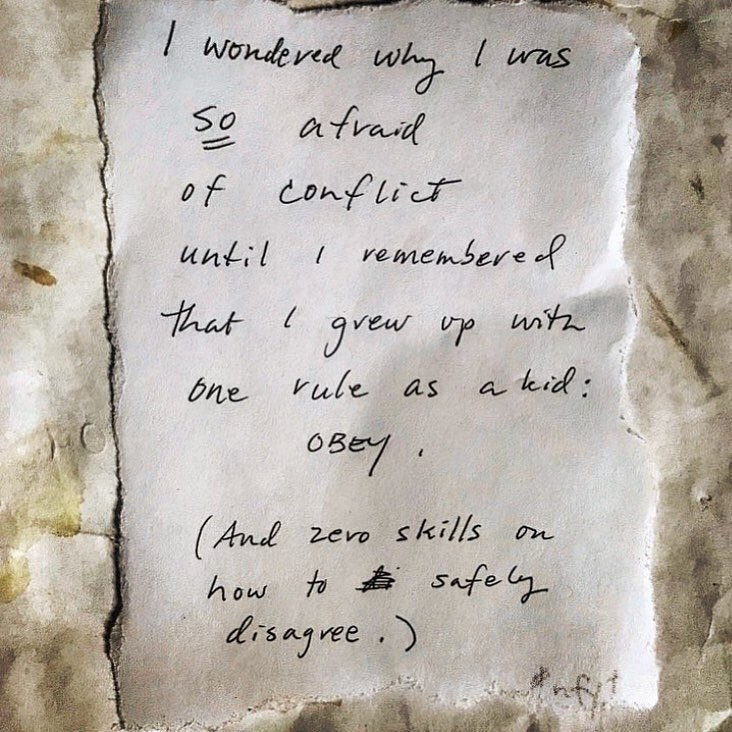 I wondered why I was
so afraid
of conflict
until I remembered
that I grew up with
one rule as a kid:
OBEY.
(And zero skills on
how to safely
disagree.)